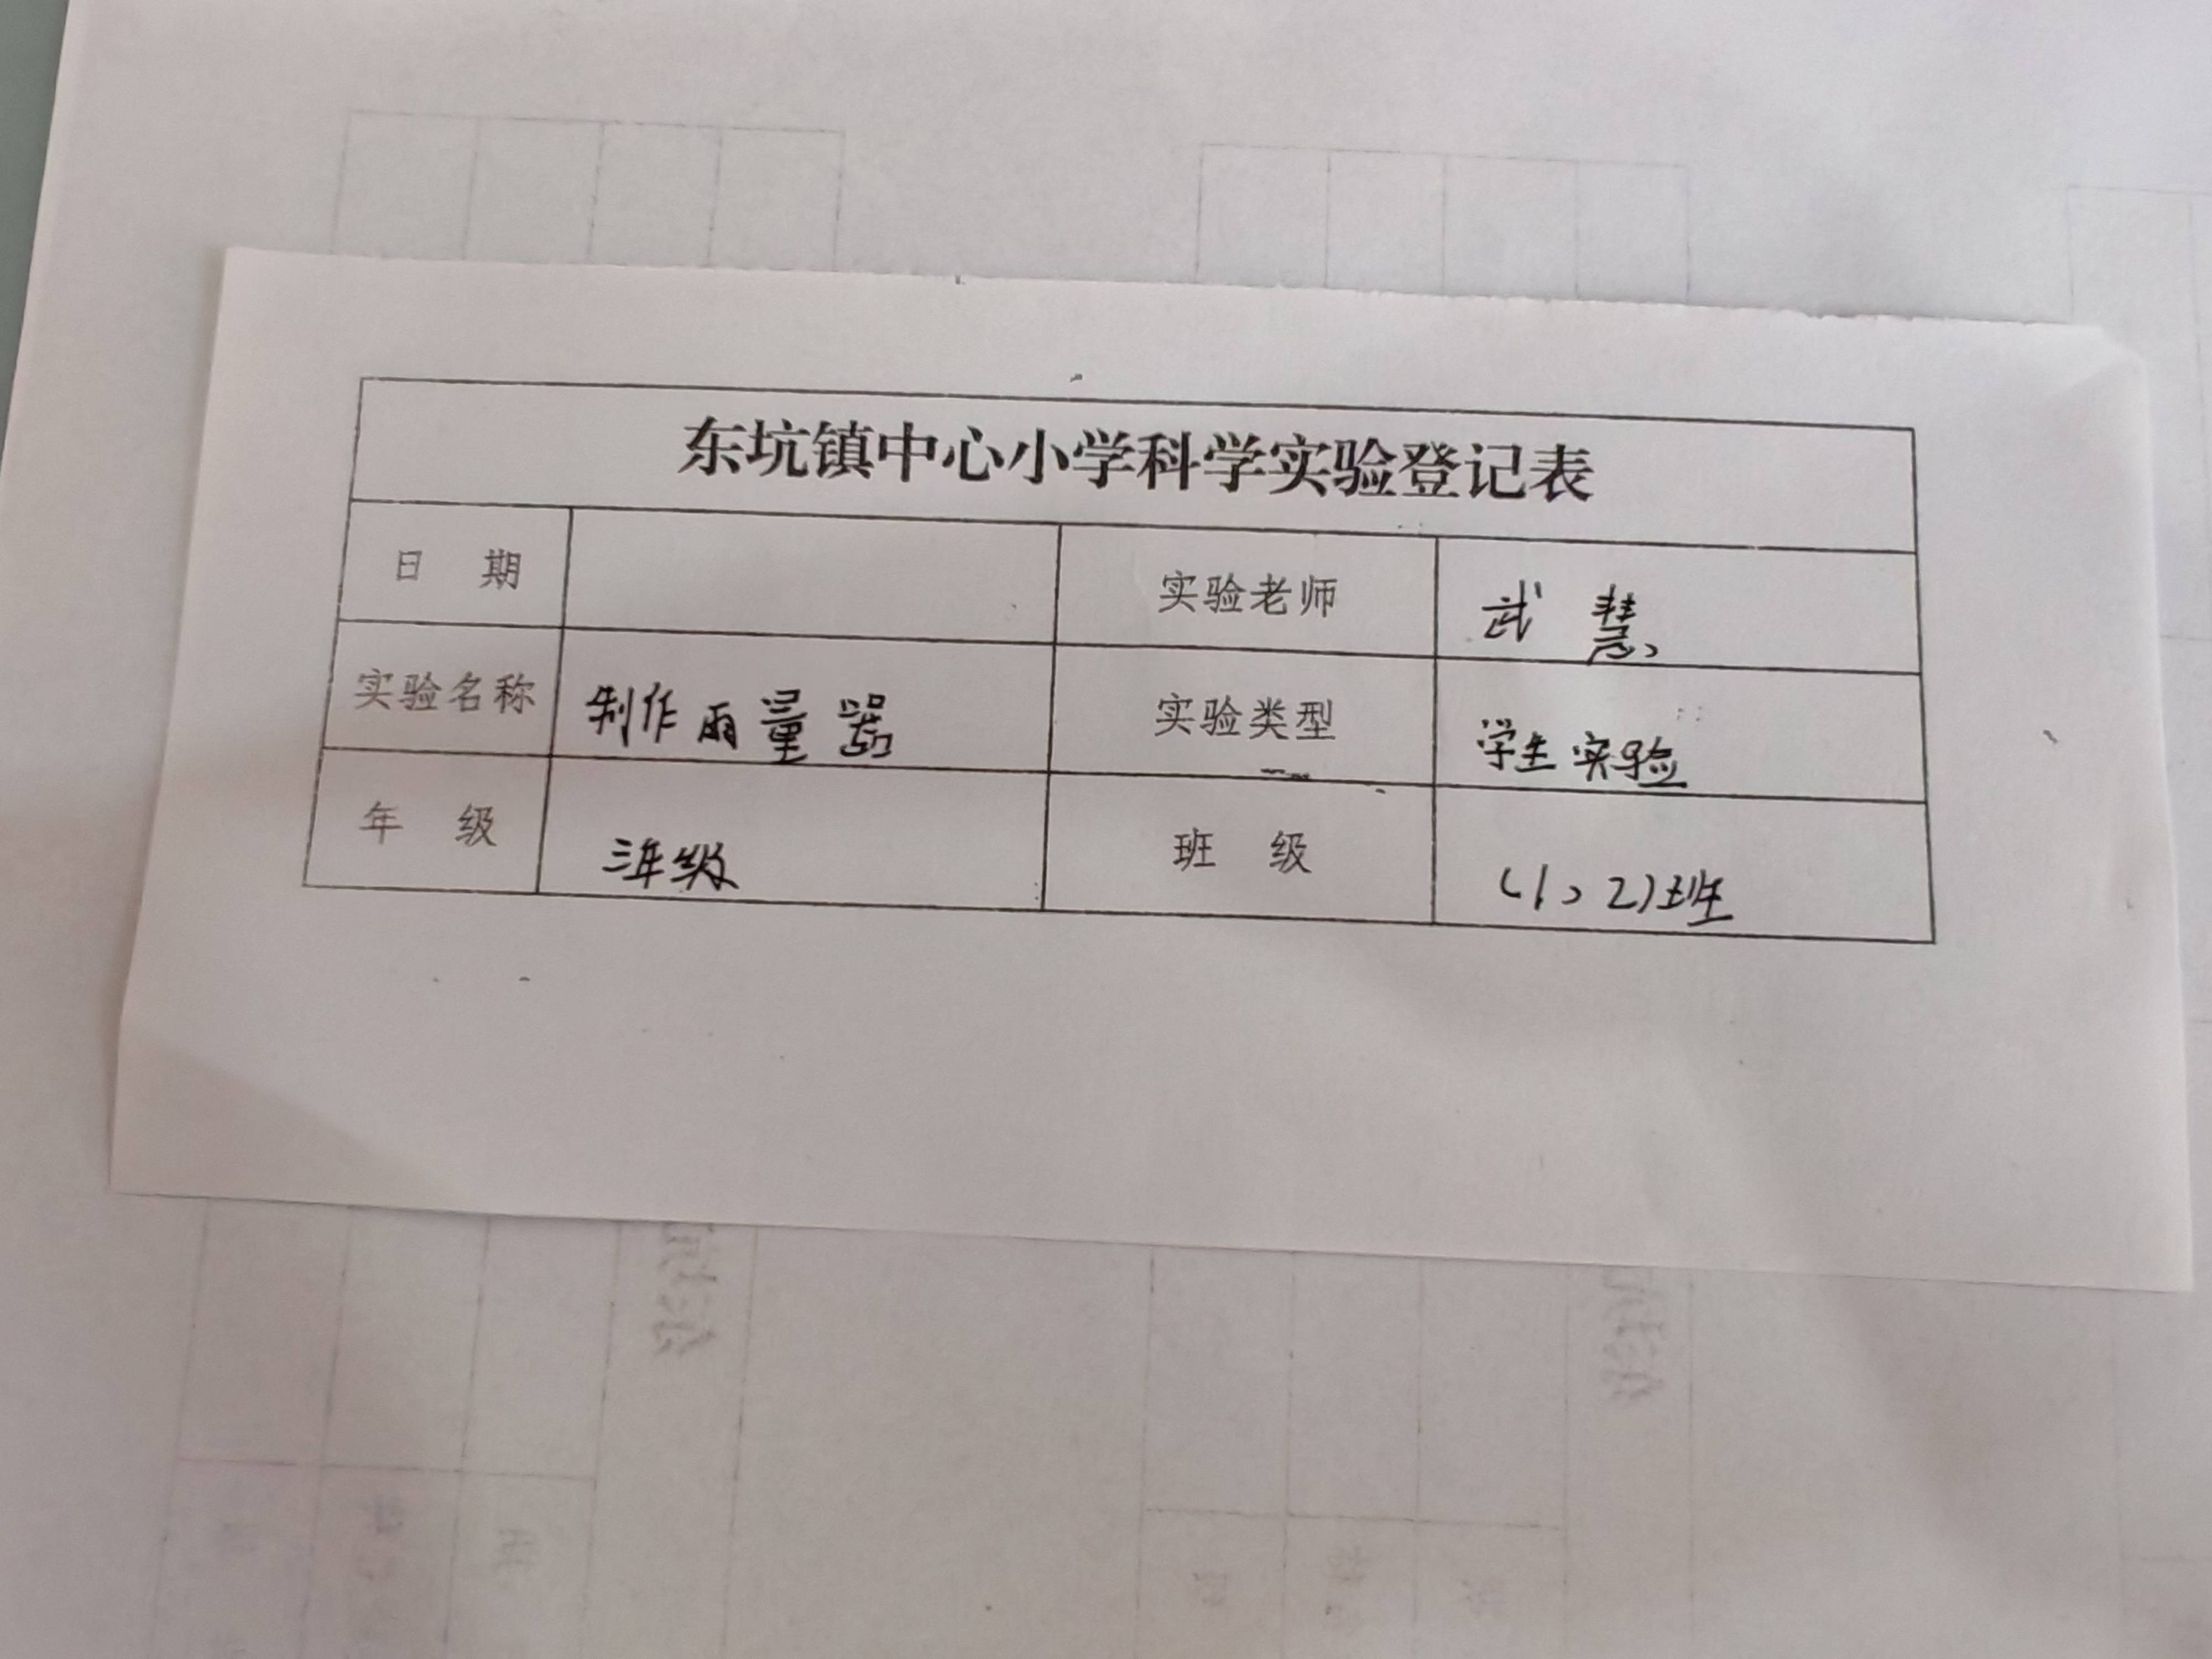 东坑镇中心小学科学实验登记表
日 期 实验老师 武 慧
实验名称 制作雨量器 实验类型 学生实验
年 级 三年级 班 级 (1、2)班